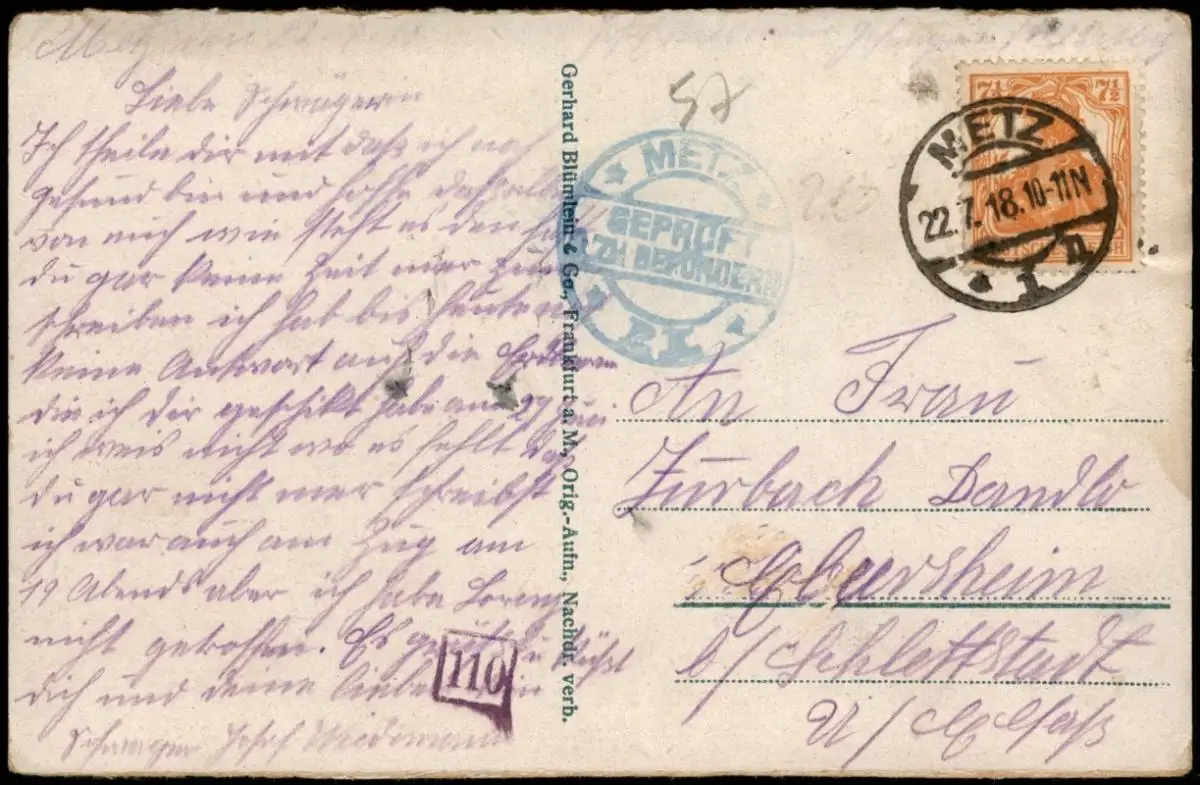 Metz den 22.
Liebe Schwägerin
Ich theile dir mit daß ich noch
gesund bin und hoffe dasselbe
von euch wie steht es den hast
du gar keine Zeit mer zum
schreiben ich hab bis heute noch
keine Antwort auf die
die ich dir geschikt habe am 27 Juni
ich weis nicht wo es fehlt daß
du gar nicht mer schreibst
ich war auch am Zug am
19 Abends aber ich habe
nicht getroffen. Es grüßt u küßt
dich und deine liebe dein
Schwager Josef Wiedemann
110
Gerhard Blümlein & Co., Frankfurt a. M., Orig.-Aufn., Nachdr. verb.
57
METZ
GEPRÜFT
ZU BEFÖRDERN
P.K.
7½ 7½
METZ
22.7.18.10-11N
* 1 n
An Frau
Zurbach Dandlo
Ebersheim
b/ Schlettstadt
U/ Elsaß